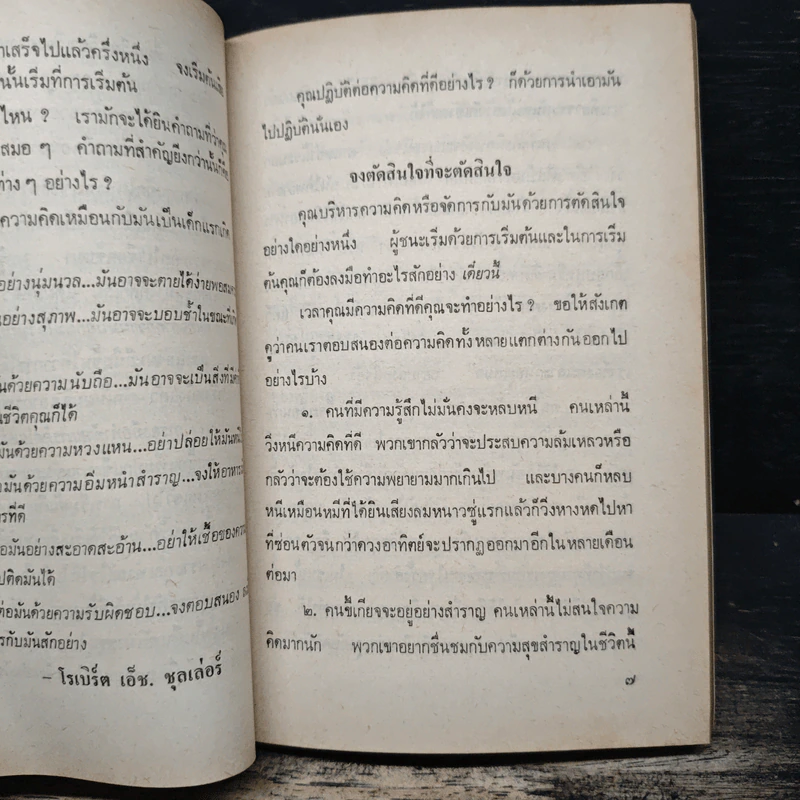 าเสร็จไปแล้วครึ่งหนึ่ง จงเริ่มต้น
นั้นเริ่มที่การเริ่มต้น
ไหน ? เรามักจะได้ยินคำถามที่ว่าคุณ
สมอ ๆ คำถามที่สำคัญยิ่งกว่านั้นก็คือ
ต่างๆ อย่างไร ?
ความคิดเหมือนกับมันเป็นเด็กแรกเกิด
อย่างนุ่มนวล...มันอาจจะตายได้ง่ายพอสมควร
นอย่างสุภาพ...มันอาจจะบอบช้ำในขณะที่
นด้วยความนับถือ...มันอาจจะเป็นสิ่งที่มีค่า
นชีวิตคุณก็ได้
มันด้วยความหวงแหน...อย่าปล่อยให้มัน
มันด้วยความอิ่มหนำสำราญ...จงให้อาหาร
รที่ดี
อมันอย่างสะอาดสะอ้าน...อย่าให้เชื้อของความ
ปติดมันได้
ต่อมันด้วยความรับผิดชอบ...จงตอบสนอง
รกับมันสักอย่าง
– โรเบิร์ต เอ็ช. ชุลเล่อร์
คุณปฏิบัติต่อความคิดที่ดีอย่างไร ? ก็ด้วยการนำเอามัน
ไปปฏิบัตินั่นเอง
จงตัดสินใจที่จะตัดสินใจ
คุณบริหารความคิดหรือจัดการกับมันด้วยการตัดสินใจ
อย่างใดอย่างหนึ่ง ผู้ชนะเริ่มด้วยการเริ่มต้นและในการเริ่ม
ต้นคุณก็ต้องลงมือทำอะไรสักอย่าง เดี๋ยวนี้
เวลาคุณมีความคิดที่ดีคุณจะทำอย่างไร ? ขอให้สังเกต
ดูว่าคนเราตอบสนองต่อความคิดทั้งหลายแตกต่างกันออกไป
อย่างไรบ้าง
๑. คนที่มีความรู้สึกไม่มั่นคงจะหลบหนี คนเหล่านี้
วิ่งหนีความคิดที่ดี พวกเขากลัวว่าจะประสบความล้มเหลวหรือ
กลัวว่าจะต้องใช้ความพยายามมากเกินไป และบางคนก็หลบ
หนีเหมือนหมีที่ได้ยินเสียงลมหนาวซู่แรกแล้วก็วิ่งหางหดไปหา
ที่ซ่อนตัวจนกว่าดวงอาทิตย์จะปรากฏออกมาอีกในหลายเดือน
ต่อมา
๒. คนขี้เกียจจะอยู่อย่างสำราญ คนเหล่านี้ไม่สนใจความ
คิดมากนัก พวกเขาอยากชื่นชมกับความสุขสำราญในชีวิตนี้
๗